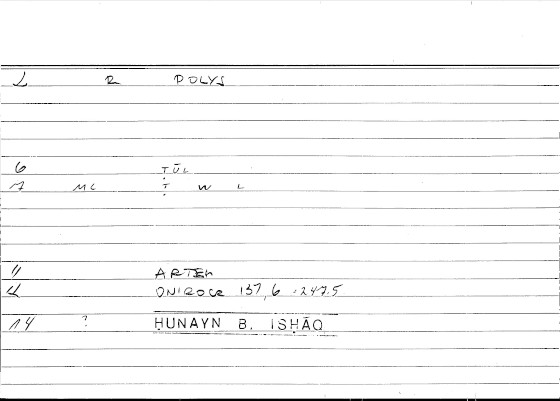 1 R POLYS
6 ṬŪL
7 ML Ṭ W L
11 ARTEM
12 ONIROCR 137,6 = 247.5
14 ? ḤUNAYN B. ISḤĀQ